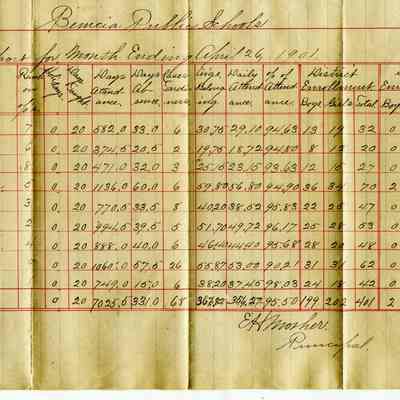 Benicia Public Schools
for Month Ending April 26, 1901
Days Attendance Days Absence Daily Attendance % of Attendance District Enrollment Boys Girls Total
7 0. 20 582.0 33.0 6 30.75 29.10 94.63 13 19 32 0
6 0. 20 374.5 20.5 2 19.75 18.72 94.80 8 12 20 0
8 0. 20 471.0 32.0 3 25.15 23.15 93.63 12 15 27 0
0. 20 1136.0 60.0 6 59.80 56.80 94.90 36 34 70 2
3 0. 20 770.5 33.5 8 40.20 38.52 95.83 22 25 47 0
2 0. 20 994.5 39.5 5 51.70 49.72 96.17 25 28 53 0
4 0. 20 888.0 40.0 6 46.40 44.40 95.68 28 20 48 0
0. 20 1060.0 57.5 26 55.87 53.00 90.21 31 31 62 0
0. 20 749.0 15.0 6 38.20 37.45 98.03 24 18 42 0
0 20 7025.5 331.0 68 95.50 199 202 401 2
Principal.